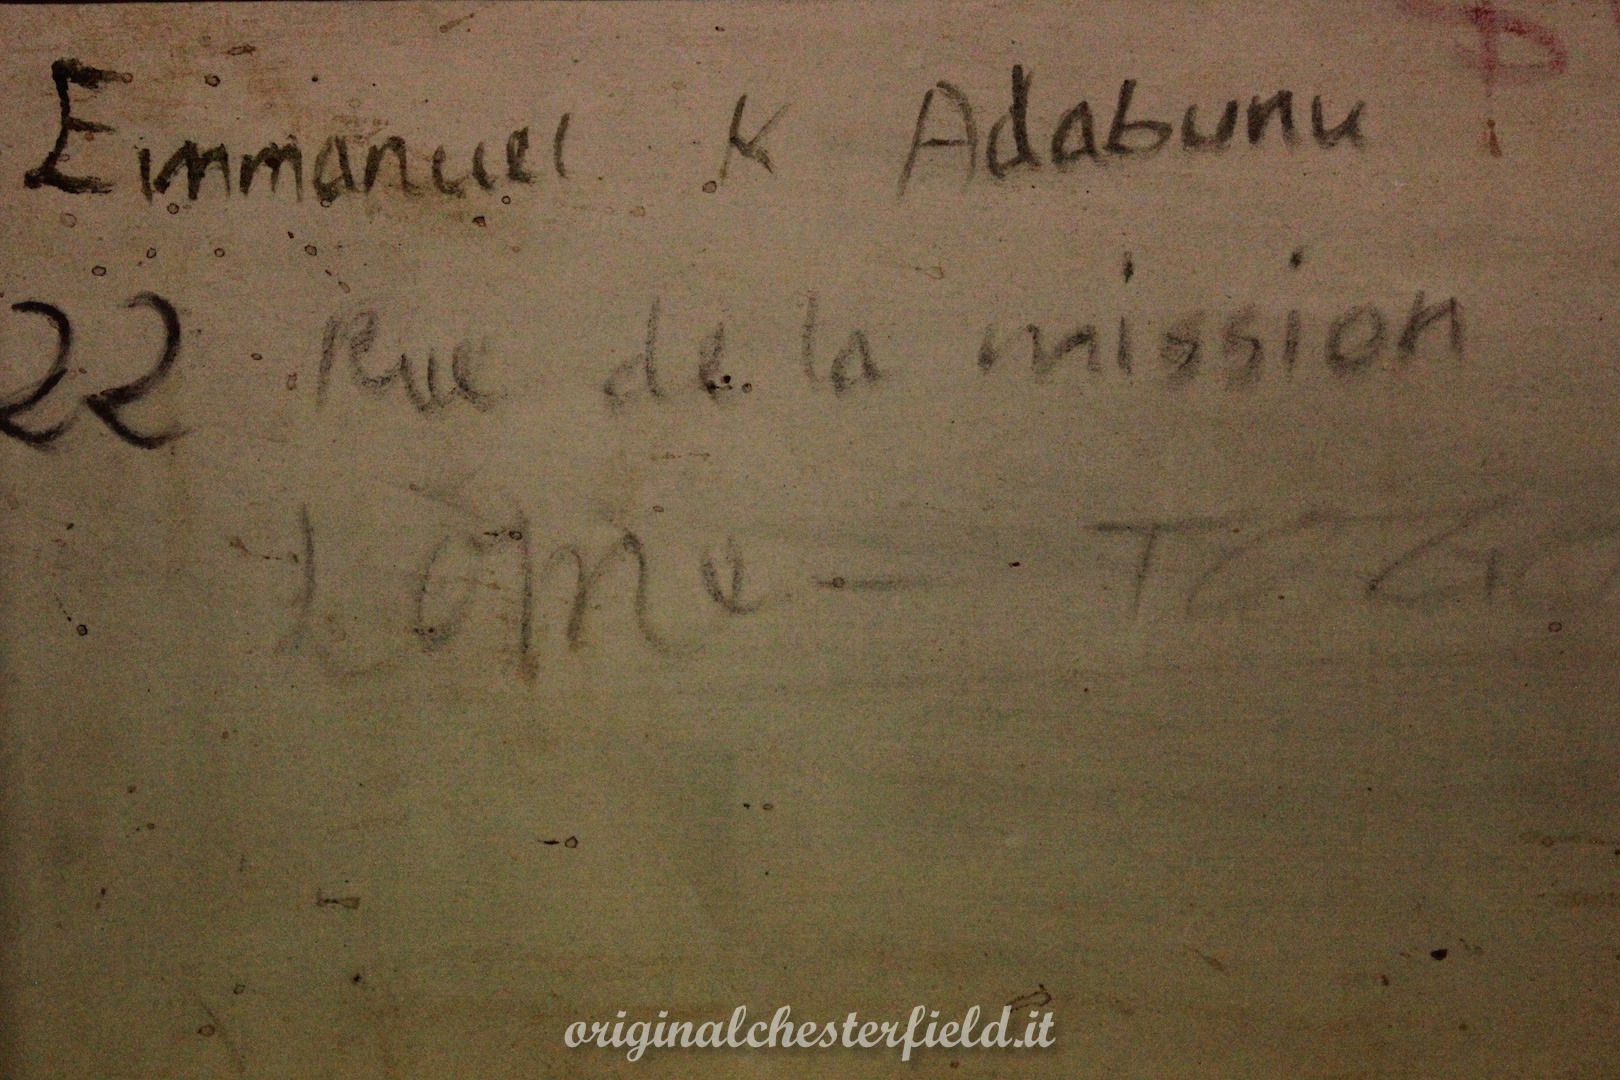 Emmanuel K Adabunu
22 Rue de la mission
Lome - TOGO
originalchesterfield.it